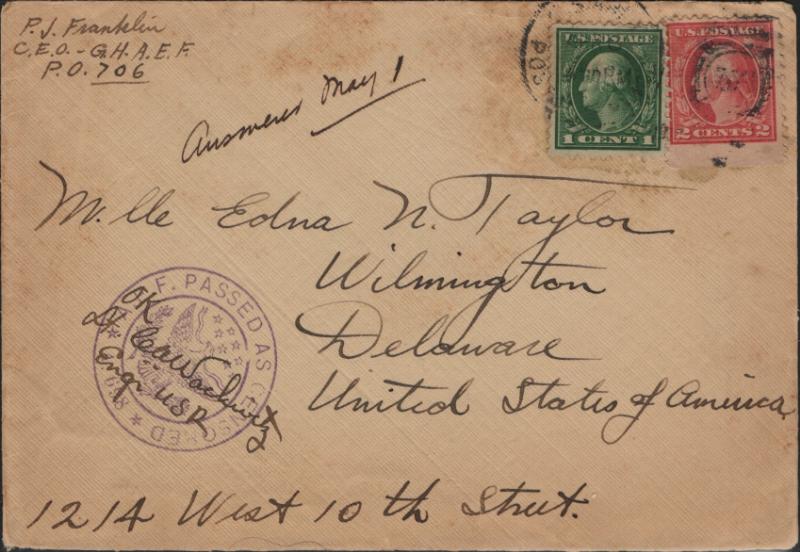 P. J. Franklin
C.E.O. - G.H.A.E.F.
P.O. 706
Answered May 1
U.S. POSTAGE
1 CENT 1
U.S. POSTAGE
2 CENTS 2
M.lle Edna N. Taylor
Wilmington
Delaware
United States of America
1214 West 10th Street.
A.E.F. PASSED AS CENSORED
OK
Engr USR